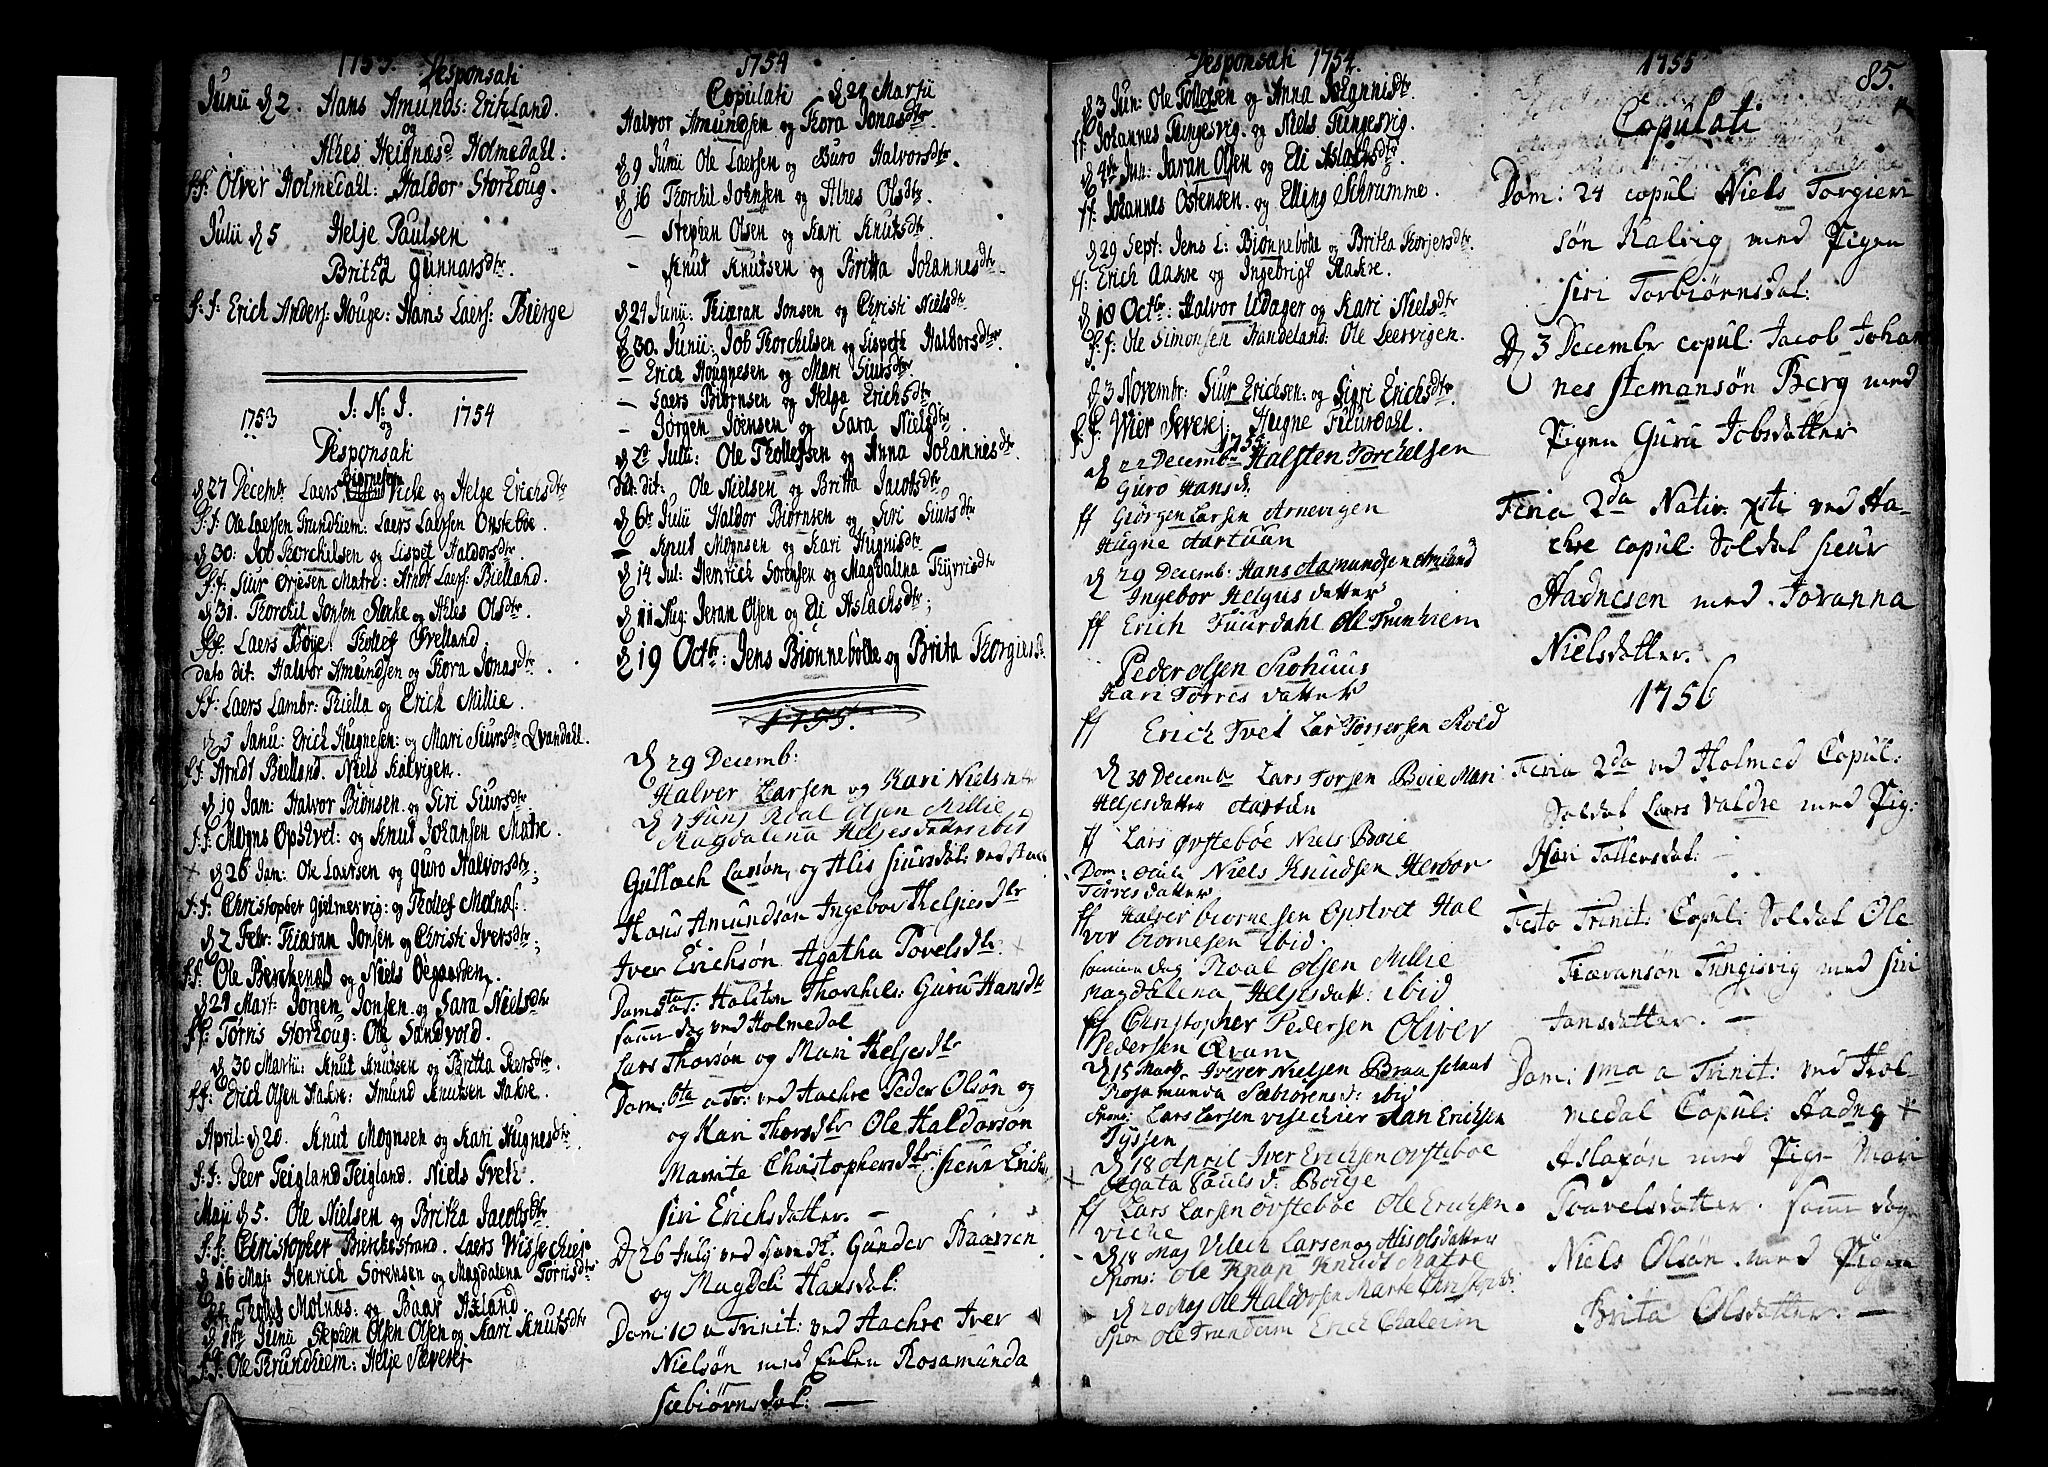 1753. Desponsati
Junii d 2. Hans Amunds: Erichland.
og
Alhes Heignæsd Holmedahl:
f.f: Olver Holmedahl: Haldor Storhoug.
Julii d 5 Helje Paulsen
og
Britha Gunnarsdtr.
f: f: Erich Anders: Houge: Hans Laers: Bierge
J: N: J.
1753 og 1754
Desponsati
d 27 Decembr Laers Biørnesen Viche og Helge Erichsdtr
f: f: Ole Laersen Trundhiem: Laers Laersen Ørstebøe.
d 30: Job Thorchilsen og Lispet Haldorsdtr.
f: f: Siur Ørjesen Matre: Arndt Laers: Bielland.
d 31. Thorchil Jonsen Sleke og Ahles Olsdtr
ff. Laers Boye: Tollef Øvelland.
dato dit: Halvor Amundsen og Thora Jonasdtr
ff: Laers Lambr: Thiella og Erich Millie.
d 5 Janu: Erich Hugnesen: og Mari Siursdtr Qvandahl.
f.f: Arndt Bielland. Niels Kalvigen.
d 19 Jan: Halvor Biønsen. og Siri Siursdtr
f: f: Mogns Opstvet: og Knut Johansen Matre.
d 26 Jan: Ole Laersen og Guro Halvorsdtr;
f: f: Christopher Gielmervig: og Tollef Molnæs:
d 2 Febr: Thiæran Jonsen og Christi Iversdtr;
ff: Ole Berchenæs og Niels Oegaarden.
d 24 Mart: Jørgen Jonsen og Sara Nielsdtr
ff: Tørris Storhoug: Ole Sandvold.
d 30 Martii: Knut Knutsen og Britta Persdtr.
f: f: Erich Olsen Aakre: Amund Knutsen Aakre.
April: d 20. Knut Mognsen og Kari Hugnesdtr.
f: f: Peer Teigland Teigland. Niels Tveth.
Maji d 5. Ole Nielsen og Britha Jacobsdtr.
f: f: Christopher Bierchestrand. Laers Wissecheir
d 16 Maji Henrich Sørensen og Magdalena Torrisdtr
ff: Tholles Molnæs: og Baar Axland
d 1te Junii Stephen Olsen Olsen og Kari Knutsdtr
f.f: Ole Thrundhiem: Helje Sævesej
1754
Copulati d 24 Martii
Halvor Amundsen og Thora Jonasdtr.
d 9 Junii Ole Laersen og Guro Halvorsdtr.
d 16 Thorchil Joensen og Alhes Olsdtr.
— Stephen Olsen og Kari Knutsdtr.
— Knut Knutsen og Britta Johannesdtr.
d 24 Junii: Thiæran Jonsen og Christi Nielsdtr
d 30. Junii: Job Thorchilsen og Lispeth Haldorsdtr
— Erich Hougnesen og Mari Siursdtr.
— Laers Biørnsen og Helga Erichsdtr.
— Jørgen Joensen og Sara Nielsdtr
d 2 Julii: Ole Thollefsen og Anna Johannesdtr.
dat: dit: Ole Nielsen og Britta Jacobsdtr
d 6te Julii Haldor Biørnsen og Siri Siursdtr
— Knut Mognsen og Kari Hugnisdtr.
d 14 Jul: Henrich Sørensen og Magdalena Thyrrisdtr
d 11 Aug: Jeran Olsen og Eli Aslachsdtr;
d 19 Octbr: Jens Biønnebølle og Brita Thorgiersd.
1755.
d 29 Decemb:
Halver Larsen og Kari Nielsdtr
d 1 Junj Roal Olsen Millie
Magdalena Helgesdatter ibid
Gullach Larsøn, og Alis Siursdat: ved Aac
Hans Amundsøn Ingebor Heljesdtr
Iver Erichsøn. Agatha Povelsdtr.
Dom 5ta T: Halsten Thorchels: Guru Hansdtr
samme dag ved Holmedal
Lars Thorsøn og Mari Heljesdtr
Dom: 6ta a Tr: ved Aachre Peder Olsøn og
og Kari Thorsdtr Ole Haldorson
Marrite Christophersdtr: Sieur Erich
Siri Erichsdatter. —
D 26 July ved Sam K. Gunder Baarsen
og Magdeli Hansdat:
Dom: 10 a Trinit: ved Aachre Iver
Nielsøn med Enken Rosamunda
Sæbiørnsdat: —
Desponsati 1754.
d 3 Jun: Ole Tollefsen og Anna Johannisdtr.
ff Johannes Tungesvig. og Niels Tungesvig.
d 4te Jun: Jaran Olsen og Eli Aslachsdtr
ff: Johannes Ostensen. og Elling Schrumme.
d 29 Sept: Jens L: Biønnebølle og Britha Thorjersdtr
ff: Erich Aakre og Ingebrigt Aakre.
d 18 Octbr: Halvor Udager og Kari Nielsdtr
f. f: Ole Simonsen Handeland: Ole Leervigen.
d 3 Novembr: Siur Erichsen: og Sigri Erichsdtr.
f. f: Wier Sevesej: Hugne Fuurdahl.
1755
d 22 Decembr Halsten Torchelsen
Guro Hansd.
ff Giørgen Larsen Arnevigen
Hugne Aartuun
d 29 Decemb: Hans Aamundsen Arland
Ingebor Helgis datter
ff Erich Fuurdahl Ole Trunhiem
Peder Olsen Skohuus
Kari Torres datter
ff Erich Tvet Lar Torgersen Kold
d 30 Decembr Lars Torsen Boie Mari
Heljesdatter Aartun
ff Lars Ørstebøe Niels Boie
Dom: oculi Niels Knudsen Herbor
Torresdatter
ff Halver biørnesen Opstvet Hal
vor biørnesen ibid.
samme dag Roal Olsen Millie
Magdalena Heljesdatt: ibid
ff Christopher Pedersen Oliver
Pedersen Qvam
d 15 Marti Iver Nielsen Braa
Rosamunda Sæbiørensd: ibid
Spons: Lars Larsen Vissechier Aan Erichsen
Tyssen
d 18 April Iver Erichsen Ørsteboe
Agata Poulsd: Bouje
ff Lars Larsen Ørstebøe Ole Erichsen
viche
d 8 Maj Ulich Larsen og Alis Olsdatter
Spons: Ole Knap Knud Matre
d 20 Maj Ole Haldorsen Marte Christophd:
Spon Ole Trundeim Erich Chaleim
1755
85.
Copulati
Dom: 24 copul: Niels Torgieri
søn Kalvig med Pigen
Siri Torbiørnsdal:
D 3 December copul: Jacob Johan
nes Stemansøn Berg med
Pigen Guru Jobsdatter
Feria 2da Nativ: Xsti ved Aa-
chre copul: Soldat Sieur
Hadnesen med Jovanna
Nielsdatter.
1756
Feria 2da ved Holmed Copul:
Soldat Laers Valdre med Pig:
Kari Tollersdat: —
Festo Trinit: Copul: Soldat Ole
Tiæransøn Tungisvig med Siri
Jansdatter. —
Dom: 1ma a Trinit: ved Hol-
medal Copul: Hadne
Aslaksøn med Pige Mari
Tovelsdatter. samme dag
Niels Olsøn med Pigen
Brita Olsdatter. —